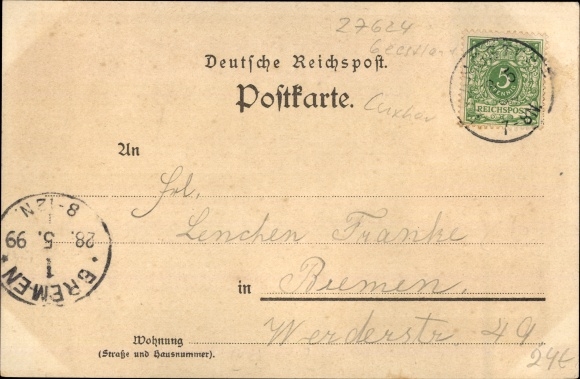 27624
Deutsche Reichspost.
Postkarte.
5
PFENNIG
REICHSPOST
7-8N.
An
Frl.
Lenchen Franke
in Bremen.
Werderstr 49
Wohnung
(Straße und Hausnummer).
BREMEN
1
28. 5. 99
8-12N.
24€